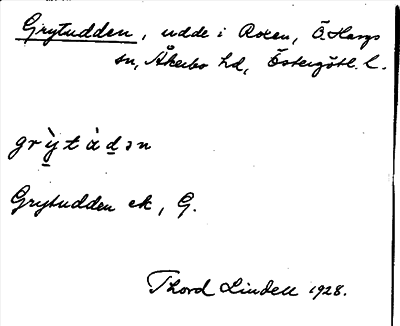 Grytudden, udde i Roxen, Ö. Hargs
sn, Åkerbo hd, Östergötl. l.
grỳ̠tàd̠ən
Grytudden ek, G.
Thord Lindell 1928.